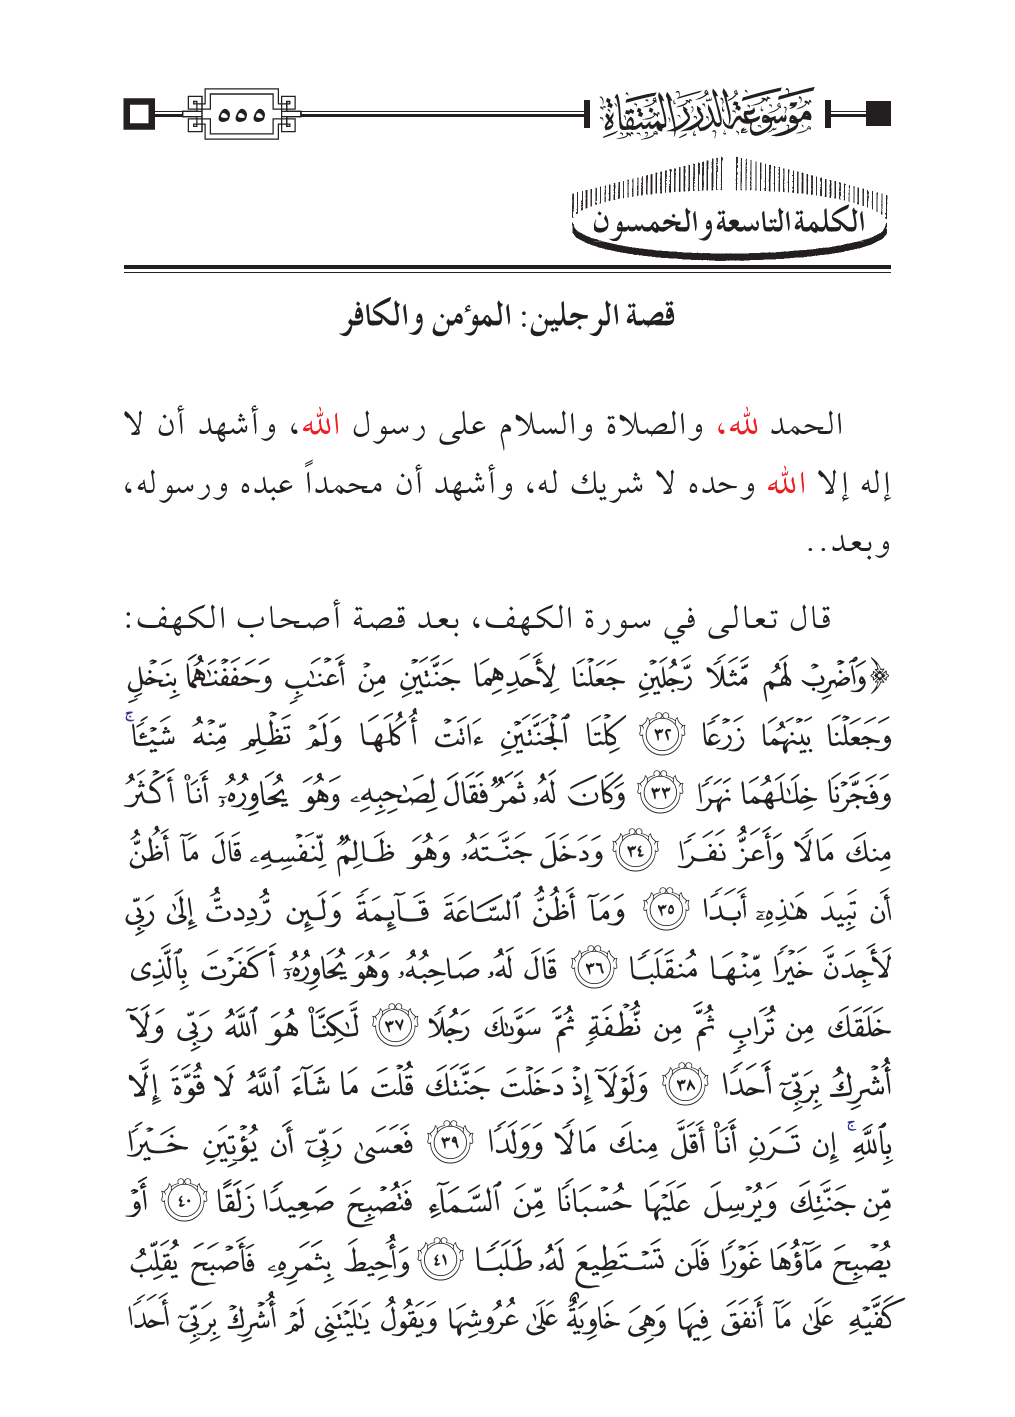 موسوعة الدرر المنتقاة
٥٥٥
الكلمة التاسعة والخمسون
قصة الرجلين: المؤمن والكافر
الحمد لله، والصلاة والسلام على رسول الله، وأشهد أن لا
إله إلا الله وحده لا شريك له، وأشهد أن محمداً عبده ورسوله،
وبعد..
قال تعالى في سورة الكهف، بعد قصة أصحاب الكهف:
﴿وَٱضۡرِبۡ لَهُم مَّثَلٗا رَّجُلَيۡنِ جَعَلۡنَا لِأَحَدِهِمَا جَنَّتَيۡنِ مِنۡ أَعۡنَٰبٖ وَحَفَفۡنَٰهُمَا بِنَخۡلٖ
وَجَعَلۡنَا بَيۡنَهُمَا زَرۡعٗا ٣٢ كِلۡتَا ٱلۡجَنَّتَيۡنِ ءَاتَتۡ أُكُلَهَا وَلَمۡ تَظۡلِم مِّنۡهُ شَيۡـٔٗاۚ
وَفَجَّرۡنَا خِلَٰلَهُمَا نَهَرٗا ٣٣ وَكَانَ لَهُۥ ثَمَرٞ فَقَالَ لِصَٰحِبِهِۦ وَهُوَ يُحَاوِرُهُۥٓ أَنَا۠ أَكۡثَرُ
مِنكَ مَالٗا وَأَعَزُّ نَفَرٗا ٣٤ وَدَخَلَ جَنَّتَهُۥ وَهُوَ ظَالِمٞ لِّنَفۡسِهِۦ قَالَ مَآ أَظُنُّ
أَن تَبِيدَ هَٰذِهِۦٓ أَبَدٗا ٣٥ وَمَآ أَظُنُّ ٱلسَّاعَةَ قَآئِمَةٗ وَلَئِن رُّدِدتُّ إِلَىٰ رَبِّي
لَأَجِدَنَّ خَيۡرٗا مِّنۡهَا مُنقَلَبٗا ٣٦ قَالَ لَهُۥ صَاحِبُهُۥ وَهُوَ يُحَاوِرُهُۥٓ أَكَفَرۡتَ بِٱلَّذِي
خَلَقَكَ مِن تُرَابٖ ثُمَّ مِن نُّطۡفَةٖ ثُمَّ سَوَّىٰكَ رَجُلٗا ٣٧ لَّٰكِنَّا۠ هُوَ ٱللَّهُ رَبِّي وَلَآ
أُشۡرِكُ بِرَبِّيٓ أَحَدٗا ٣٨ وَلَوۡلَآ إِذۡ دَخَلۡتَ جَنَّتَكَ قُلۡتَ مَا شَآءَ ٱللَّهُ لَا قُوَّةَ إِلَّا
بِٱللَّهِۚ إِن تَرَنِ أَنَا۠ أَقَلَّ مِنكَ مَالٗا وَوَلَدٗا ٣٩ فَعَسَىٰ رَبِّيٓ أَن يُؤۡتِيَنِ خَيۡرٗا
مِّن جَنَّتِكَ وَيُرۡسِلَ عَلَيۡهَا حُسۡبَانٗا مِّنَ ٱلسَّمَآءِ فَتُصۡبِحَ صَعِيدٗا زَلَقًا ٤٠ أَوۡ
يُصۡبِحَ مَآؤُهَا غَوۡرٗا فَلَن تَسۡتَطِيعَ لَهُۥ طَلَبٗا ٤١ وَأُحِيطَ بِثَمَرِهِۦ فَأَصۡبَحَ يُقَلِّبُ
كَفَّيۡهِ عَلَىٰ مَآ أَنفَقَ فِيهَا وَهِيَ خَاوِيَةٌ عَلَىٰ عُرُوشِهَا وَيَقُولُ يَٰلَيۡتَنِي لَمۡ أُشۡرِكۡ بِرَبِّيٓ أَحَدٗا